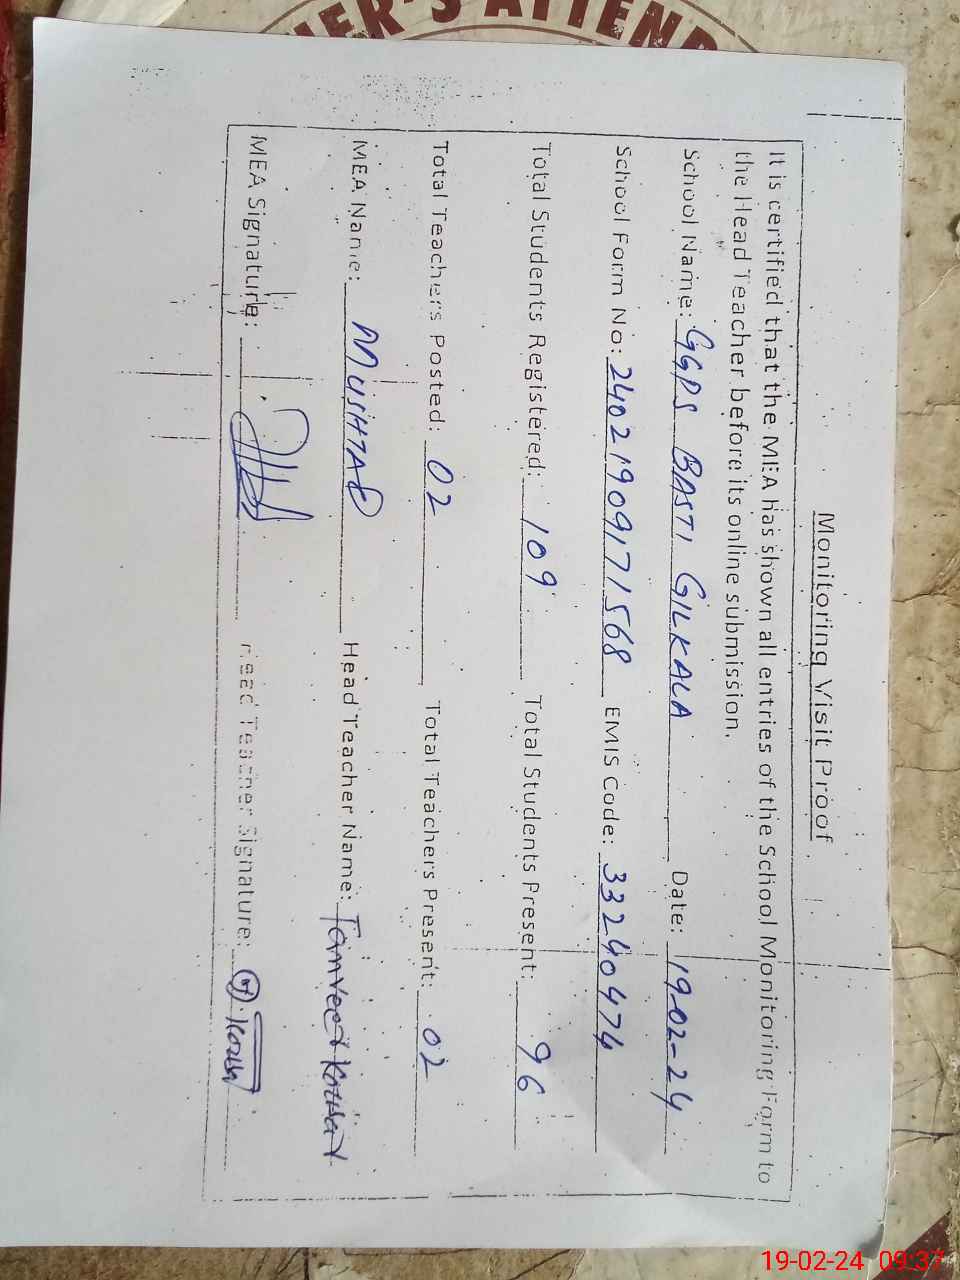 Monitoring Visit Proof
It is certified that the MEA has shown all entries of the School Monitoring Form to
the Head Teacher before its online submission.
School Name: GGPS BASTI GILKALA Date: 19-02-24
School Form No: 2402190917 1568 EMIS Code: 33240474
Total Students Registered: 109 Total Students Present: 96
Total Teachers Posted: 02 Total Teachers Present: 02
MEA Name: MUSHTAQ Head Teacher Name: Tanveer Kousar
MEA Signature: Head Teacher Signature:
19-02-24 09:37